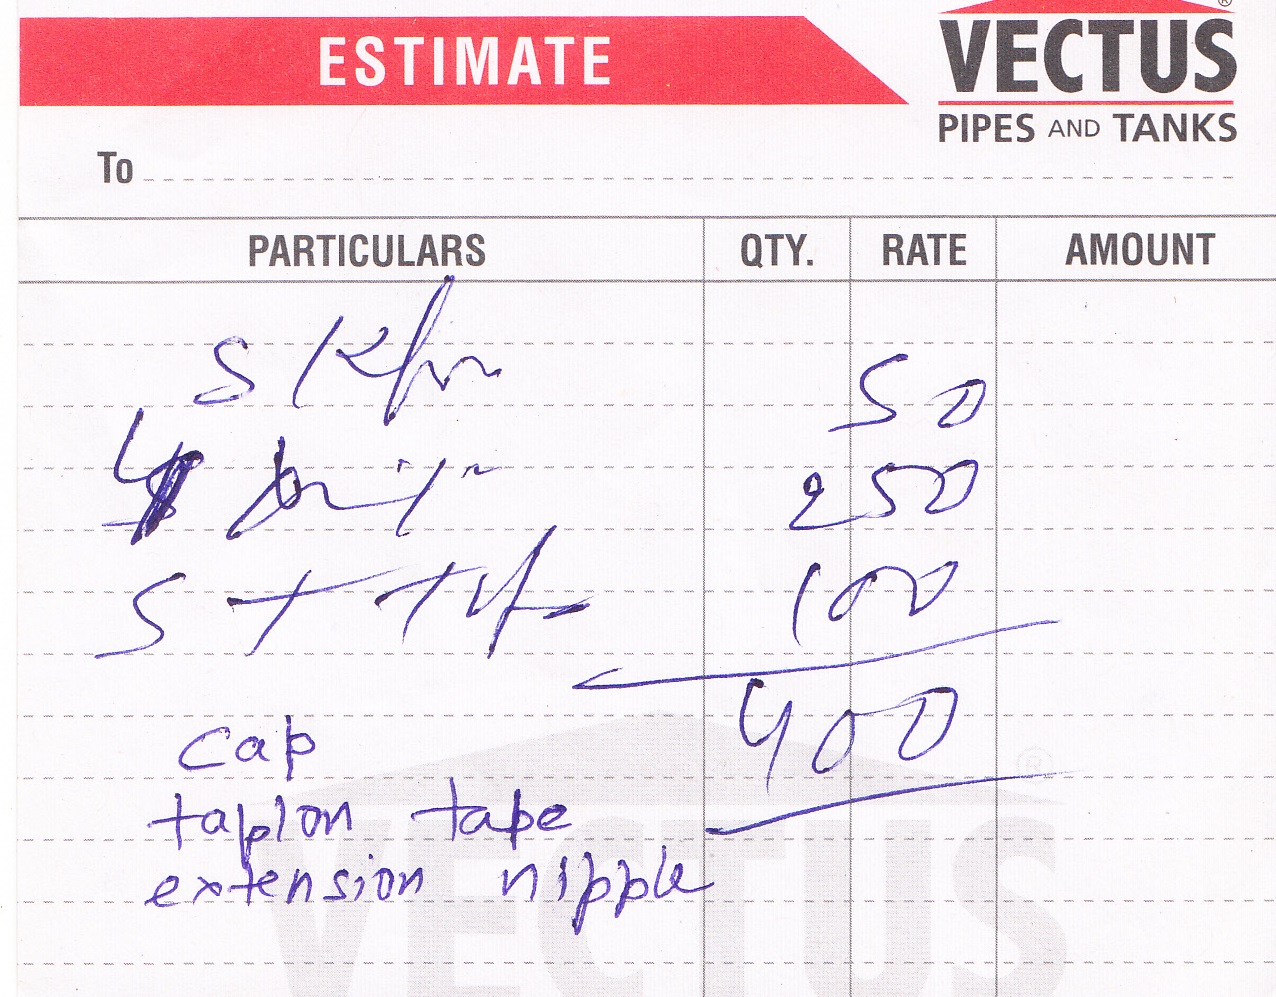 ESTIMATE
VECTUS
®
PIPES AND TANKS
To
PARTICULARS QTY. RATE AMOUNT
S 50
250
S 100
400
cap
taplon tape
extension nipple
VECTUS
®